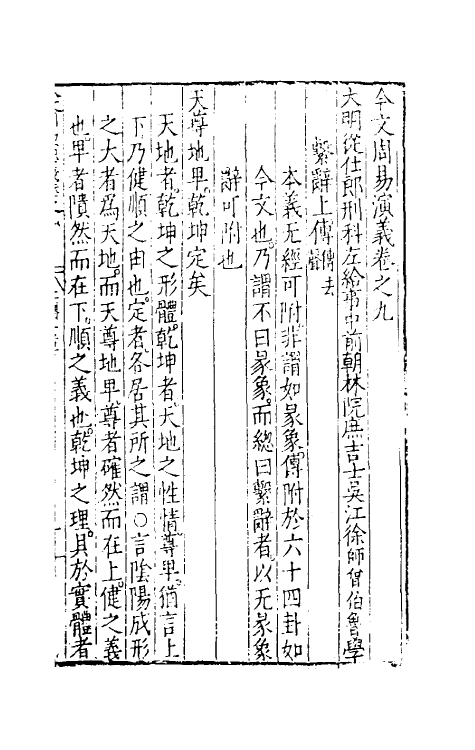 今文周易演義卷之九
大明從仕郎刑科左給事中前翰林院庶吉士吳江徐師曾伯魯學
繫辭上傳傳去聲
本義无經可附非謂如彖象傳附於六十四卦如
今文也乃謂不曰彖象而總曰繫辭者以无彖象
辭可附也
天尊地卑乾坤定矣
天地者乾坤之形體乾坤者天地之性情尊卑猶言上
下乃健順之由也定者各居其所之謂○言陰陽成形
之大者為天地而天尊地卑尊者確然而在上健之義
也卑者隤然而在下順之義也乾坤之理具於實體者